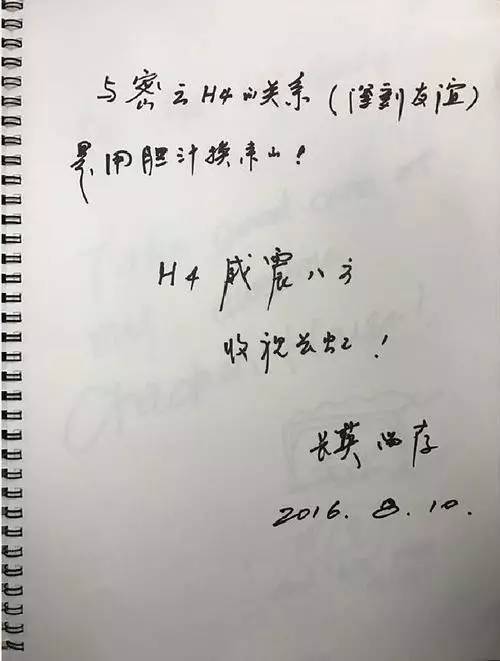 与密云H4的关系(得到友谊)
是用胆汁换来的!
H4 威震八方
收视长虹!
长英
2016. 8. 10.